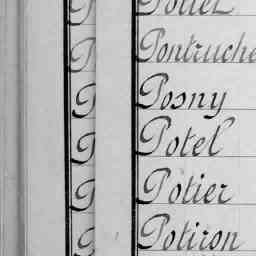 Pontruche
Posny
Potel
Potier
Potiron